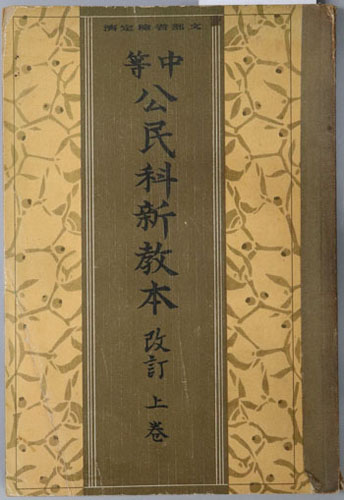 文部省検定済
中等
公民科新教本 改訂 上巻